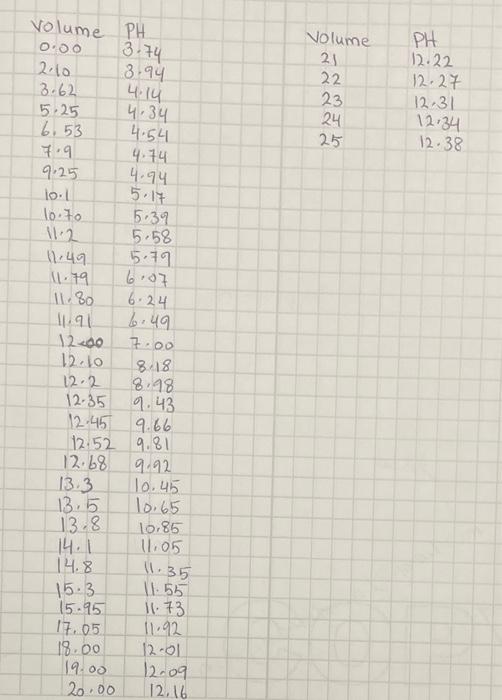 Volume PH
0.00 3.74
2.10 3.94
3.62 4.14
5.25 4.34
6.53 4.54
7.9 4.74
9.25 4.94
10.1 5.17
10.70 5.39
11.2 5.58
11.49 5.79
11.79 6.07
11.80 6.24
11.91 6.49
12.00 7.00
12.10 8.18
12.2 8.98
12.35 9.43
12.45 9.66
12.52 9.81
12.68 9.92
13.3 10.45
13.5 10.65
13.8 10.85
14.1 11.05
14.8 11.35
15.3 11.55
15.95 11.73
17.05 11.92
18.00 12.01
19.00 12.09
20.00 12.16
Volume PH
21 12.22
22 12.27
23 12.31
24 12.34
25 12.38